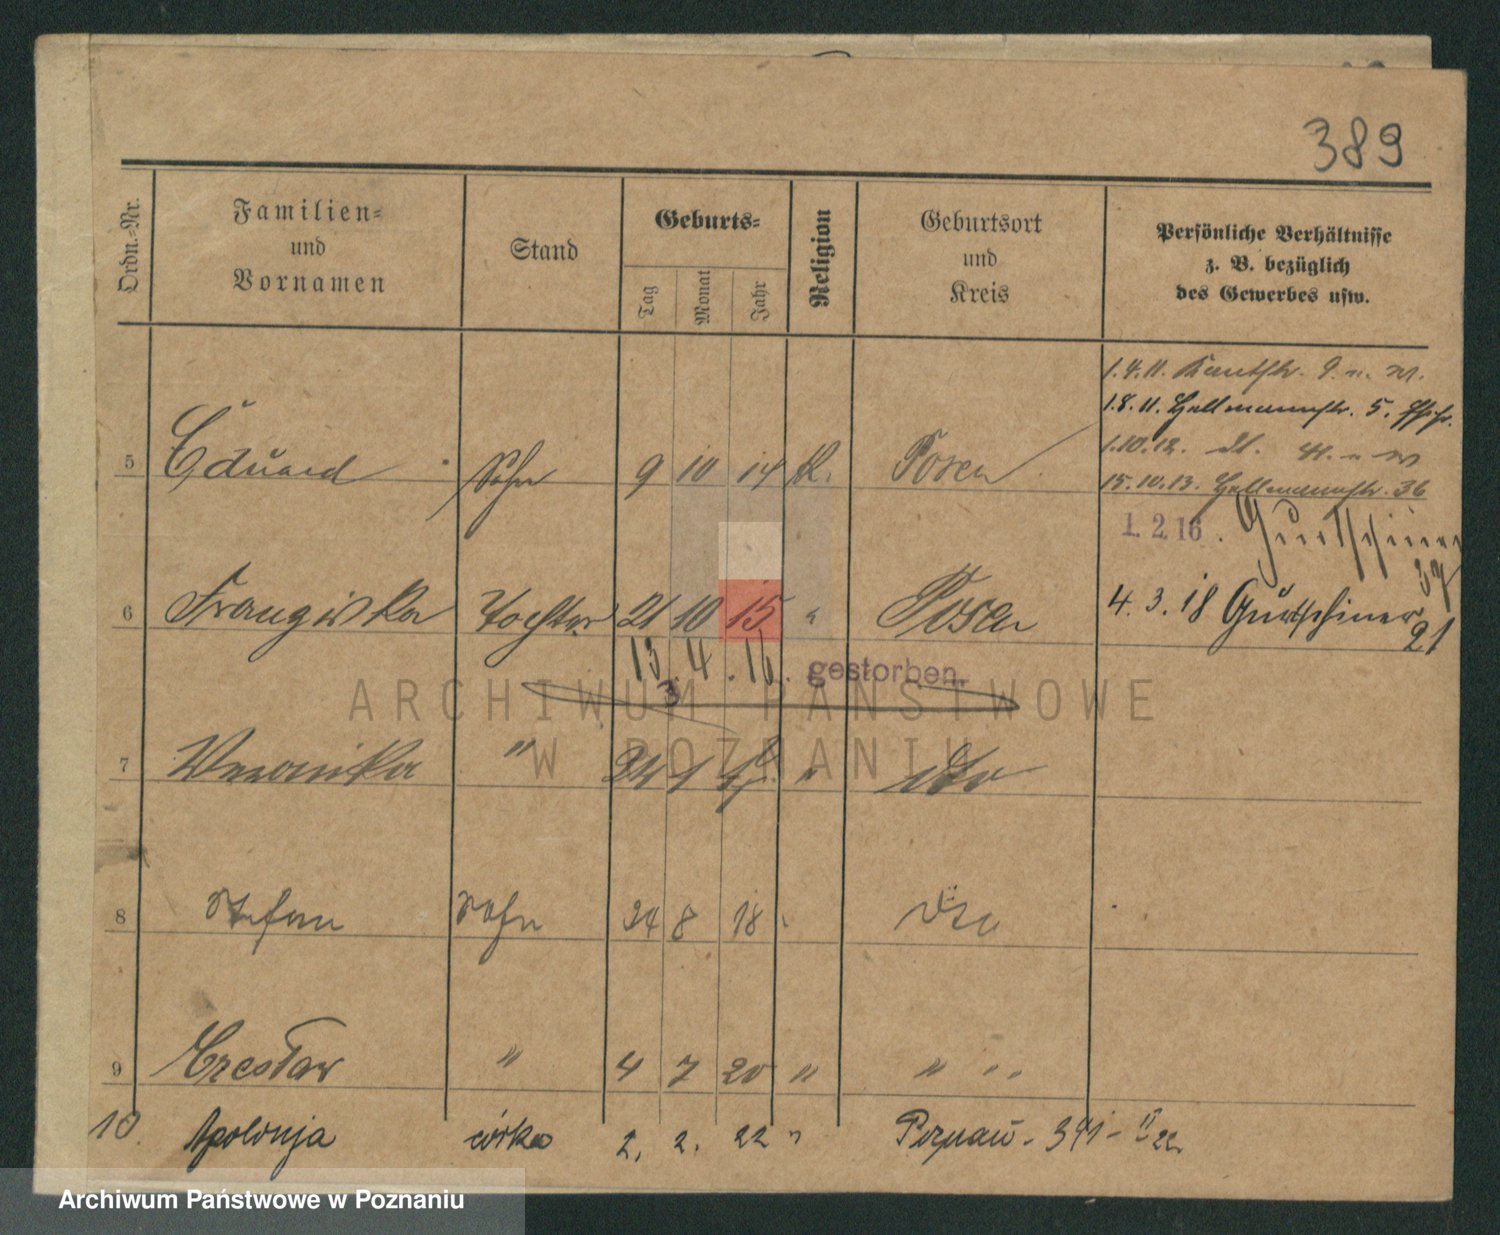 389
Ordn.=Nr.
Familien=
und
Vornamen
Stand
Geburts=
Tag
Monat
Jahr
Religion
Geburtsort
und
Kreis
Persönliche Verhältnisse
z. B. bezüglich
des Gewerbes usw.
1.4.11. Kantstr. 9.
1.8.11. Hellmannstr. 5.
1.10.12.
15.10.13. Hellmannstr. 36
5 Eduard Sohn 9 10 14 K. Posen
1. 2. 16. Gurtschiner
37
6 Franziska Tochter 21 10 15 " Posen 4. 3. 18 Gurtschiner
21
13. 4. 16. gestorben.
3
ARCHIWUM PAŃSTWOWE
W POZNANIU
7 Veronika " 24 1 " dto
8 Stefan Sohn 24 8 18 dto
9 Czesław " 4 7 20 " " "
10 Apolonja córka 2. 2. 22 " Poznań - 391 - II 22
Archiwum Państwowe w Poznaniu